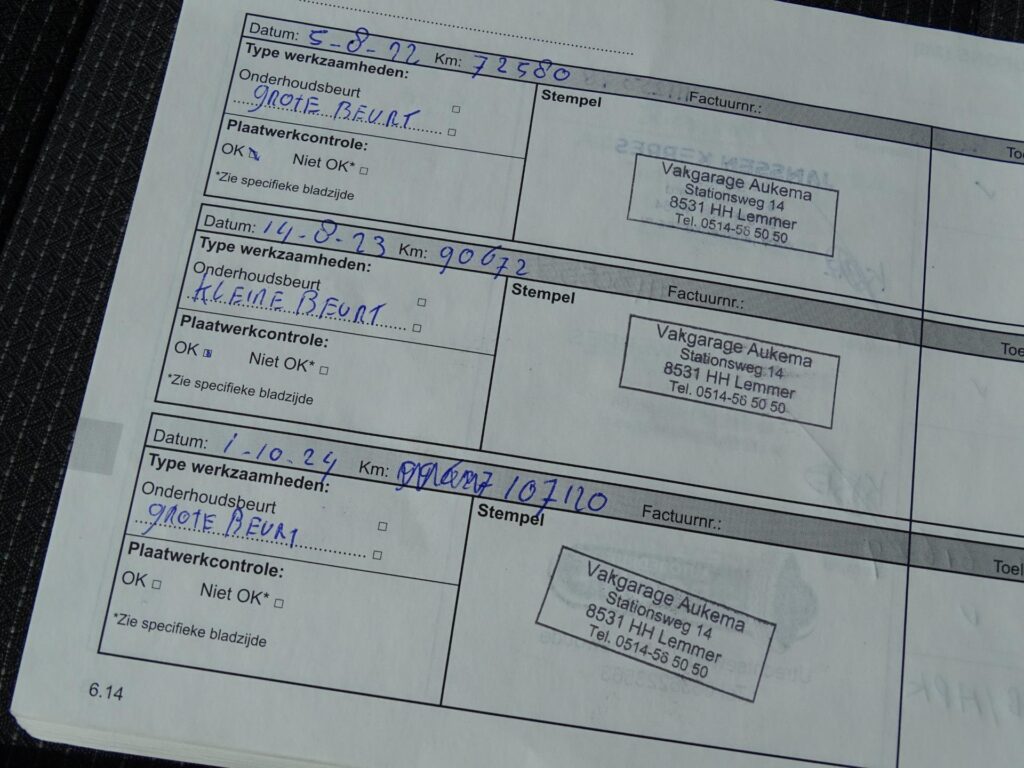 Datum: 5-8-22 Km: 72580 Factuurnr.:
Type werkzaamheden:
Onderhoudsbeurt
GROTE BEURT
Plaatwerkcontrole:
OK Niet OK*
*Zie specifieke bladzijde
Stempel
Vakgarage Aukema
Stationsweg 14
8531 HH Lemmer
Tel. 0514-56 50 50
Datum: 14-8-23 Km: 90672 Factuurnr.:
Type werkzaamheden:
Onderhoudsbeurt
KLEINE BEURT
Plaatwerkcontrole:
OK Niet OK*
*Zie specifieke bladzijde
Stempel
Vakgarage Aukema
Stationsweg 14
8531 HH Lemmer
Tel. 0514-56 50 50
Datum: 1-10-24 Km: 107120 Factuurnr.:
Type werkzaamheden:
Onderhoudsbeurt
GROTE BEURT
Plaatwerkcontrole:
OK Niet OK*
*Zie specifieke bladzijde
Stempel
Vakgarage Aukema
Stationsweg 14
8531 HH Lemmer
Tel. 0514-56 50 50
6.14